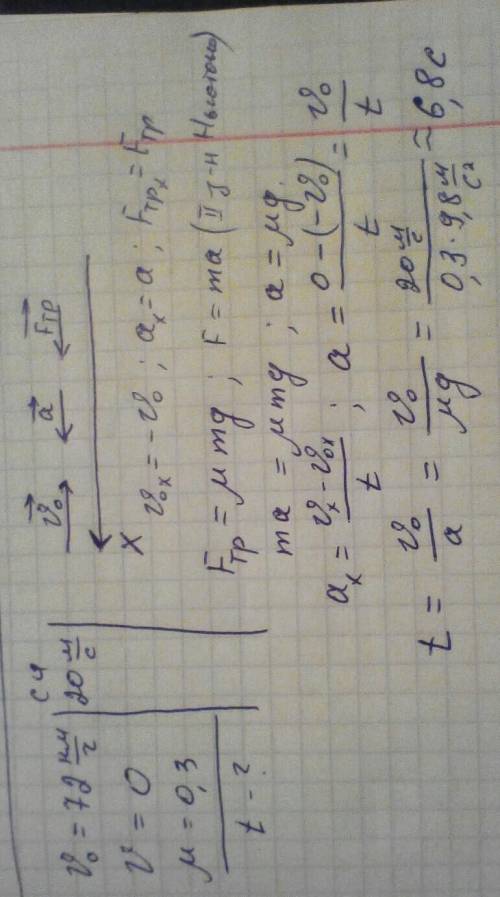 СИ
v₀ = 72 км/г | 20 м/с
v = 0
μ = 0,3
t - ?
v₀→ a→ Fтр→
X
v₀ₓ = -v₀ ; aₓ = a ; Fтрₓ = Fтр
Fтр = μmg ; F = ma (II з-н Ньютона)
ma = μmg ; a = μg.
aₓ = (vₓ - v₀ₓ)/t ; a = (0 - (-v₀))/t = v₀/t
t = v₀/a = v₀/μg = (20 м/с)/(0,3 · 9,8 м/с²) ≈ 6,8 с